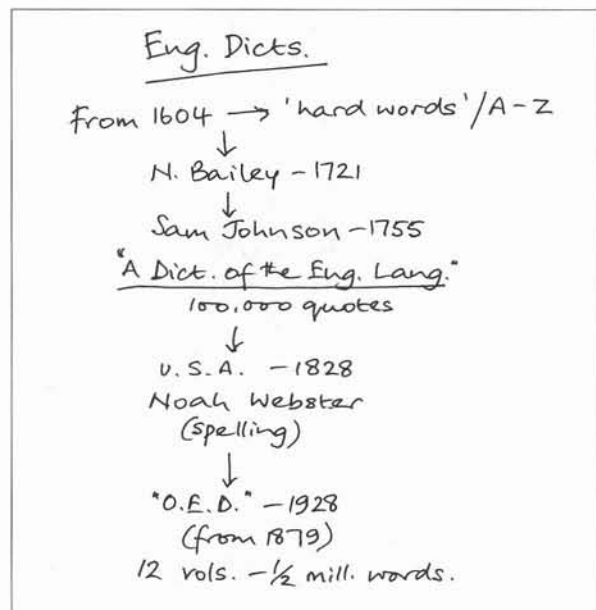 Eng. Dicts.
From 1604 → 'hard words' / A-Z
↓
N. Bailey - 1721
↓
Sam Johnson - 1755
"A Dict. of the Eng. Lang."
100,000 quotes
↓
U.S.A. - 1828
Noah Webster
(spelling)
↓
"O.E.D." - 1928
(from 1879)
12 vols. - ½ mill. words.